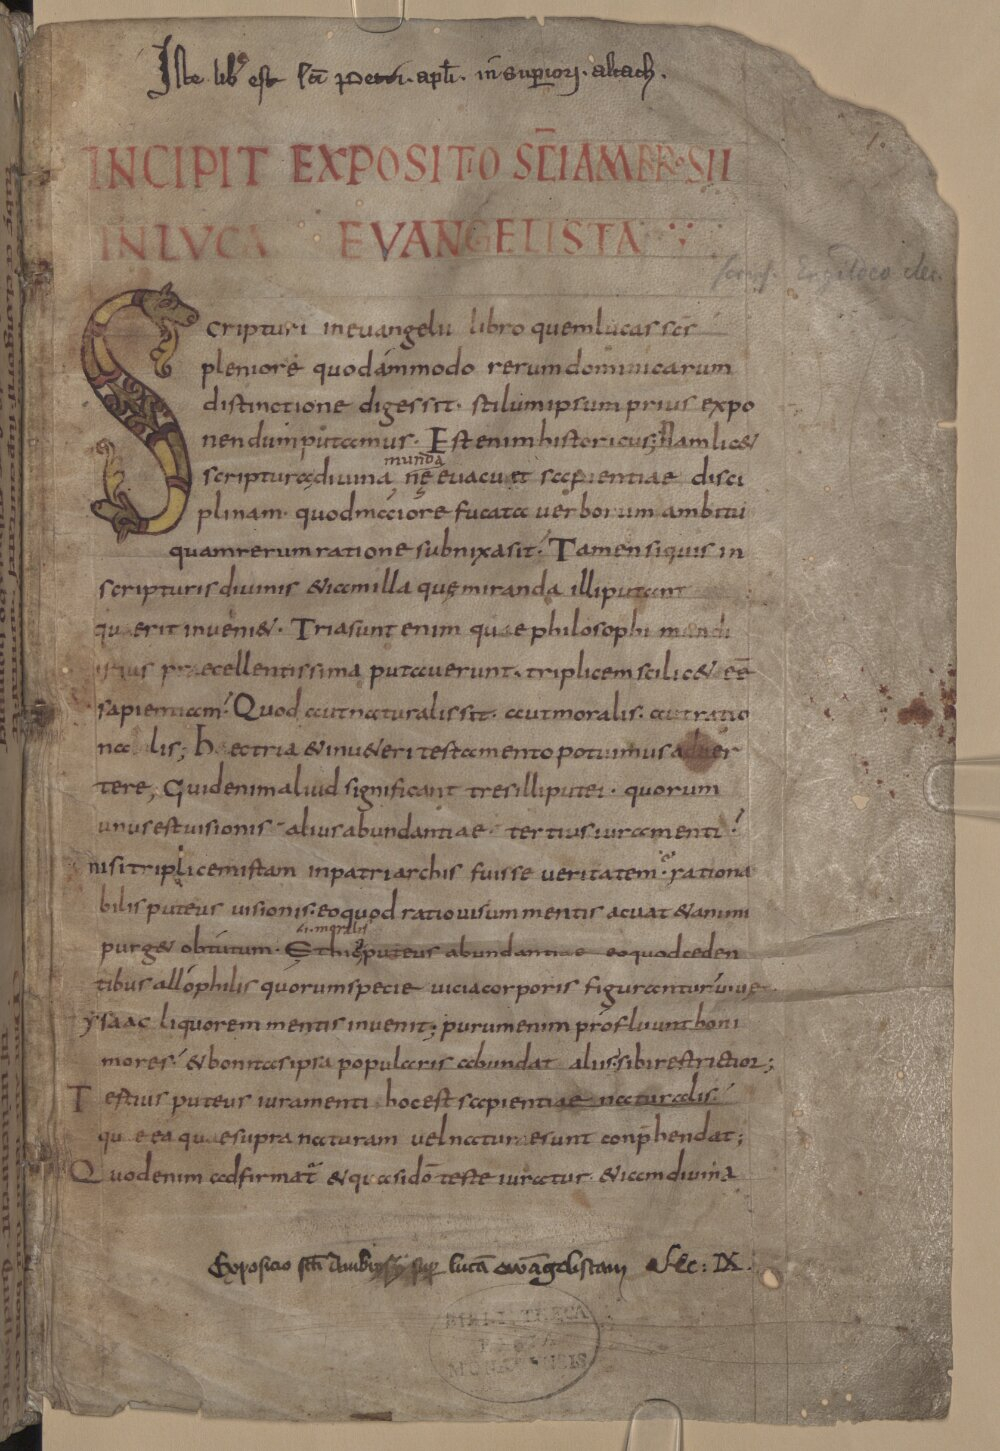 Iste lib est sc̄i Petri apl̄i in superiori altach.
INCIPIT EXPOSITIO SC̄I AMBROSII
IN LUCA EVANGELISTA
Scripturi inevangelii libro quem lucas sc̄s
pleniore quodammodo rerum dominicarum
distinctione digessit. stilum ipsum prius expo
nendum putamus. Est enim historicus; Nam lic&
munda
scriptura divina nę evacuet sapientiae disci
plinam. quod maciore fucata verborum ambitu
quam rerum ratione subnixa sit. Tamen siquis in
scripturis divinis &iam illa quę miranda illi putant
quaerit inveni&. Tria sunt enim quae philosophi mundi
istius praecellentissima putaverunt. triplicem scilic& eē
sapientiam. Quod aut naturalis sit. aut moralis. aut ratio
nalis; haec tria & in v&eri testamento potuimus adver
tere, Quid enim aliud significant tres illi putei. quorum
unus est visionis alius abundantiae. tertius iuramenti.
nisi triplicem istam in patriarchis fuisse veritatem. rationa
bilis puteus visionis. eo quod ratio visum mentis acuat & animi
.i. moralis
purg& obtutum. Ethic puteus abundantiae eo quod ceden
tibus allophilis quorum specie vicia corporis figurantur vivę
ysaac liquorem mentis invenit; purum enim profluunt boni
mores. & bonitas ipsa popularis abundat alius sibi restrictior;
Testius puteus iuramenti hoc est sapientiae naturalis.
quae ea quae supra naturam vel naturae sunt conp̄hendat;
Quod enim adfirmat & quasi dō teste iuratur. &iam divina
Exposicio sc̄i Ambrosy sup lucā ewāgelistam
BIBLIOTHECA
REGIA
MONACENSIS